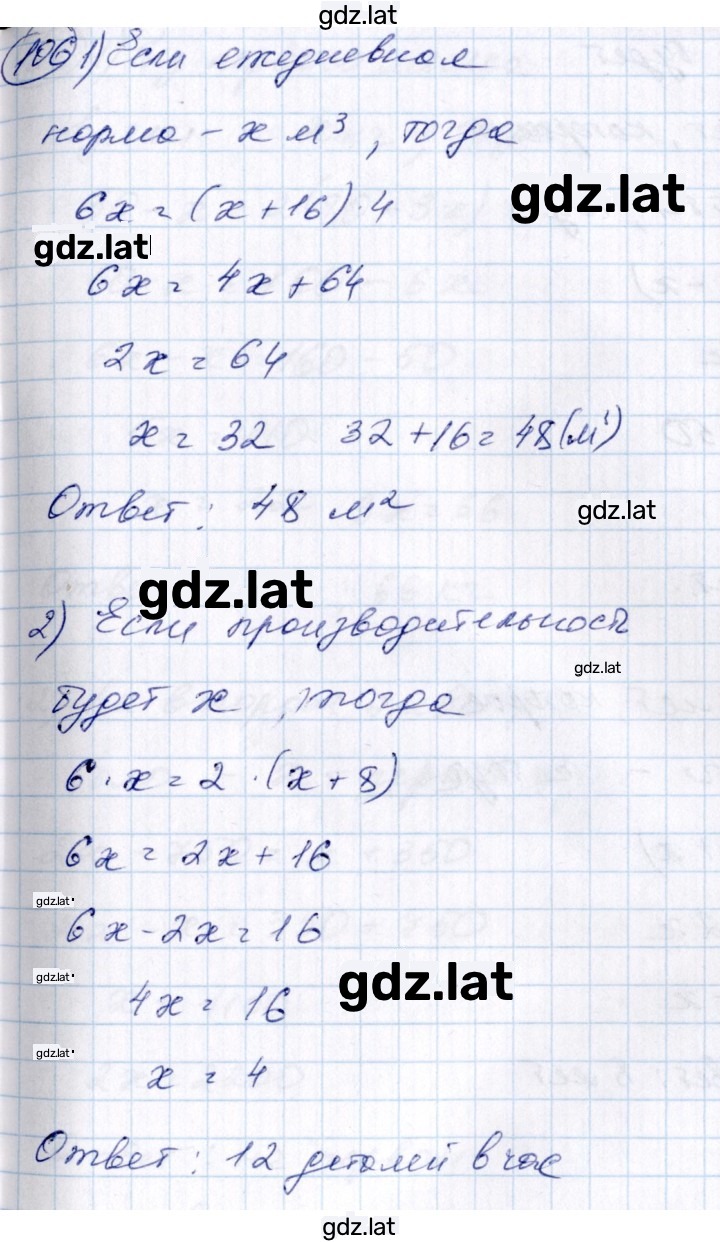 gdz.lat
106 1) Если ежедневная
норма - x м³, тогда
gdz.lat
6x = (x+16)·4
gdz.lat
6x = 4x+64
2x = 64
x = 32 32+16=48(м¹)
Ответ: 48 м²
gdz.lat
gdz.lat
2) Если производительность
gdz.lat
будет x, тогда
6·x=2·(x+8)
6x = 2x+16
gdz.lat
6x-2x=16
gdz.lat
gdz.lat
4x = 16
gdz.lat
x = 4
Ответ: 12 деталей в час
gdz.lat